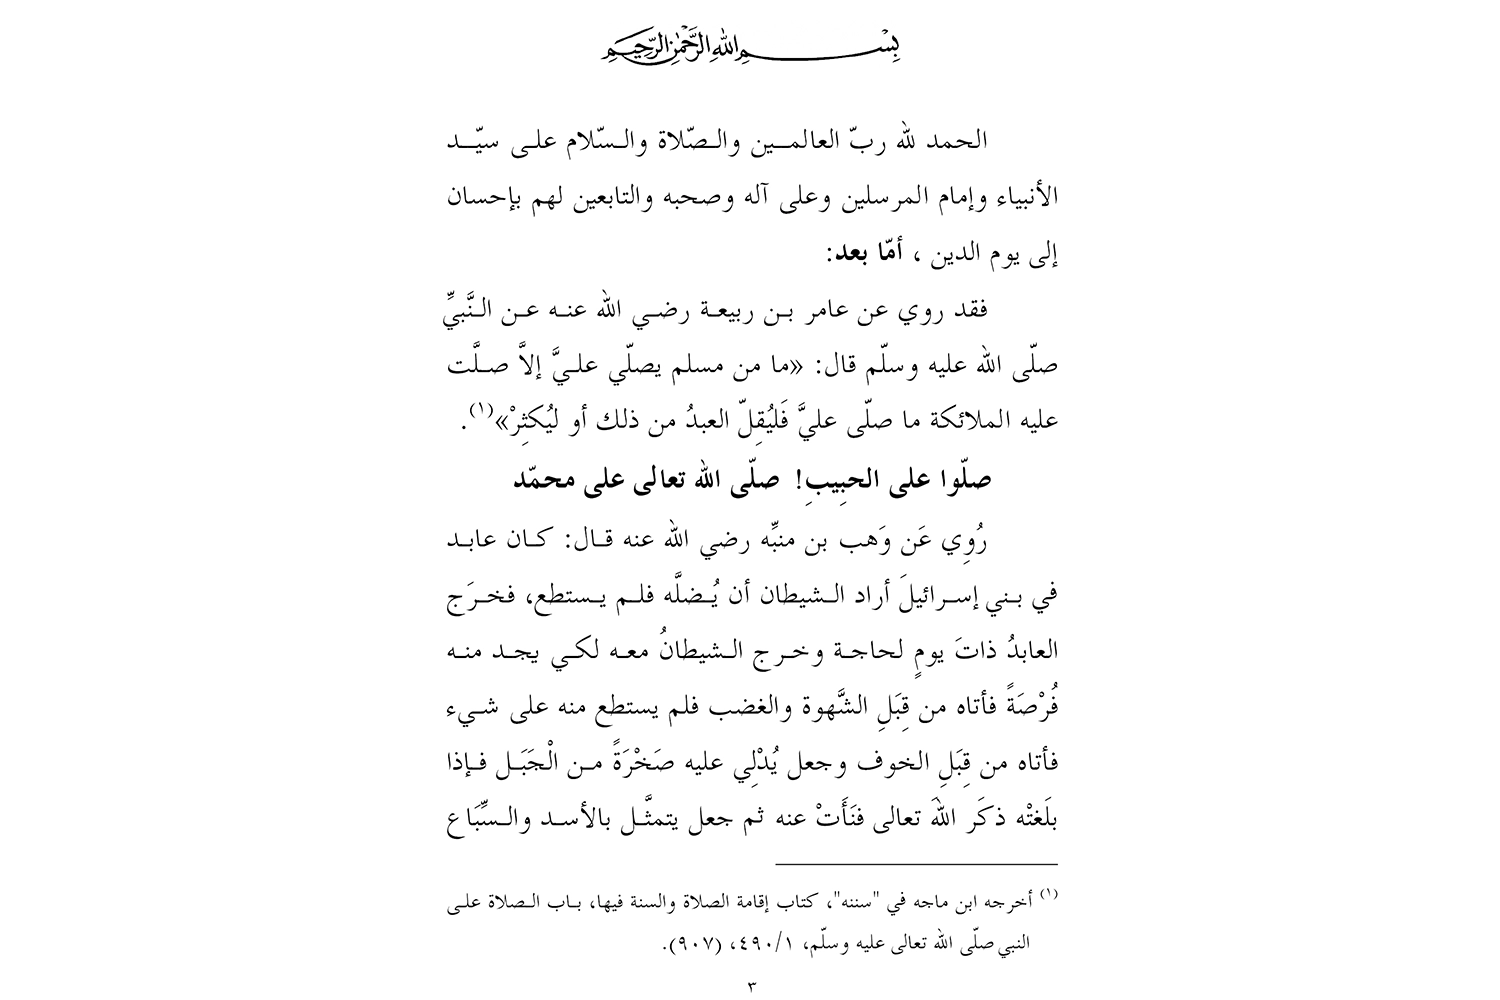 بِسْمِ اللهِ الرَّحْمٰنِ الرَّحِيْمِ
الحمد لله ربّ العالمين والصّلاة والسّلام على سيّد
الأنبياء وإمام المرسلين وعلى آله وصحبه والتابعين لهم بإحسان
إلى يوم الدين ، أمّا بعد:
فقد روي عن عامر بن ربيعة رضي الله عنه عن النَّبيِّ
صلّى الله عليه وسلّم قال: «ما من مسلم يصلّي عليَّ إلاَّ صلَّت
عليه الملائكة ما صلّى عليَّ فَليُقِلّ العبدُ من ذلك أو ليُكثِرْ»(١).
صلّوا على الحبِيبِ! صلّى الله تعالى على محمّد
رُوِي عَن وَهب بن منبِّه رضي الله عنه قال: كان عابد
في بني إسرائيلَ أراد الشيطان أن يُضلَّه فلم يستطع، فخرَج
العابدُ ذاتَ يومٍ لحاجة وخرج الشيطانُ معه لكي يجد منه
فُرْصَةً فأتاه من قِبَلِ الشَّهوة والغضب فلم يستطع منه على شيء
فأتاه من قِبَلِ الخوف وجعل يُدْلِي عليه صَخْرَةً من الْجَبَل فإذا
بلَغتْه ذكَر اللهَ تعالى فنَأَتْ عنه ثم جعل يتمثَّل بالأسد والسِّبَاع
(١) أخرجه ابن ماجه في "سننه"، كتاب إقامة الصلاة والسنة فيها، باب الصلاة على
النبي صلّى الله تعالى عليه وسلّم، ٤٩٠/١، (٩٠٧).
٣